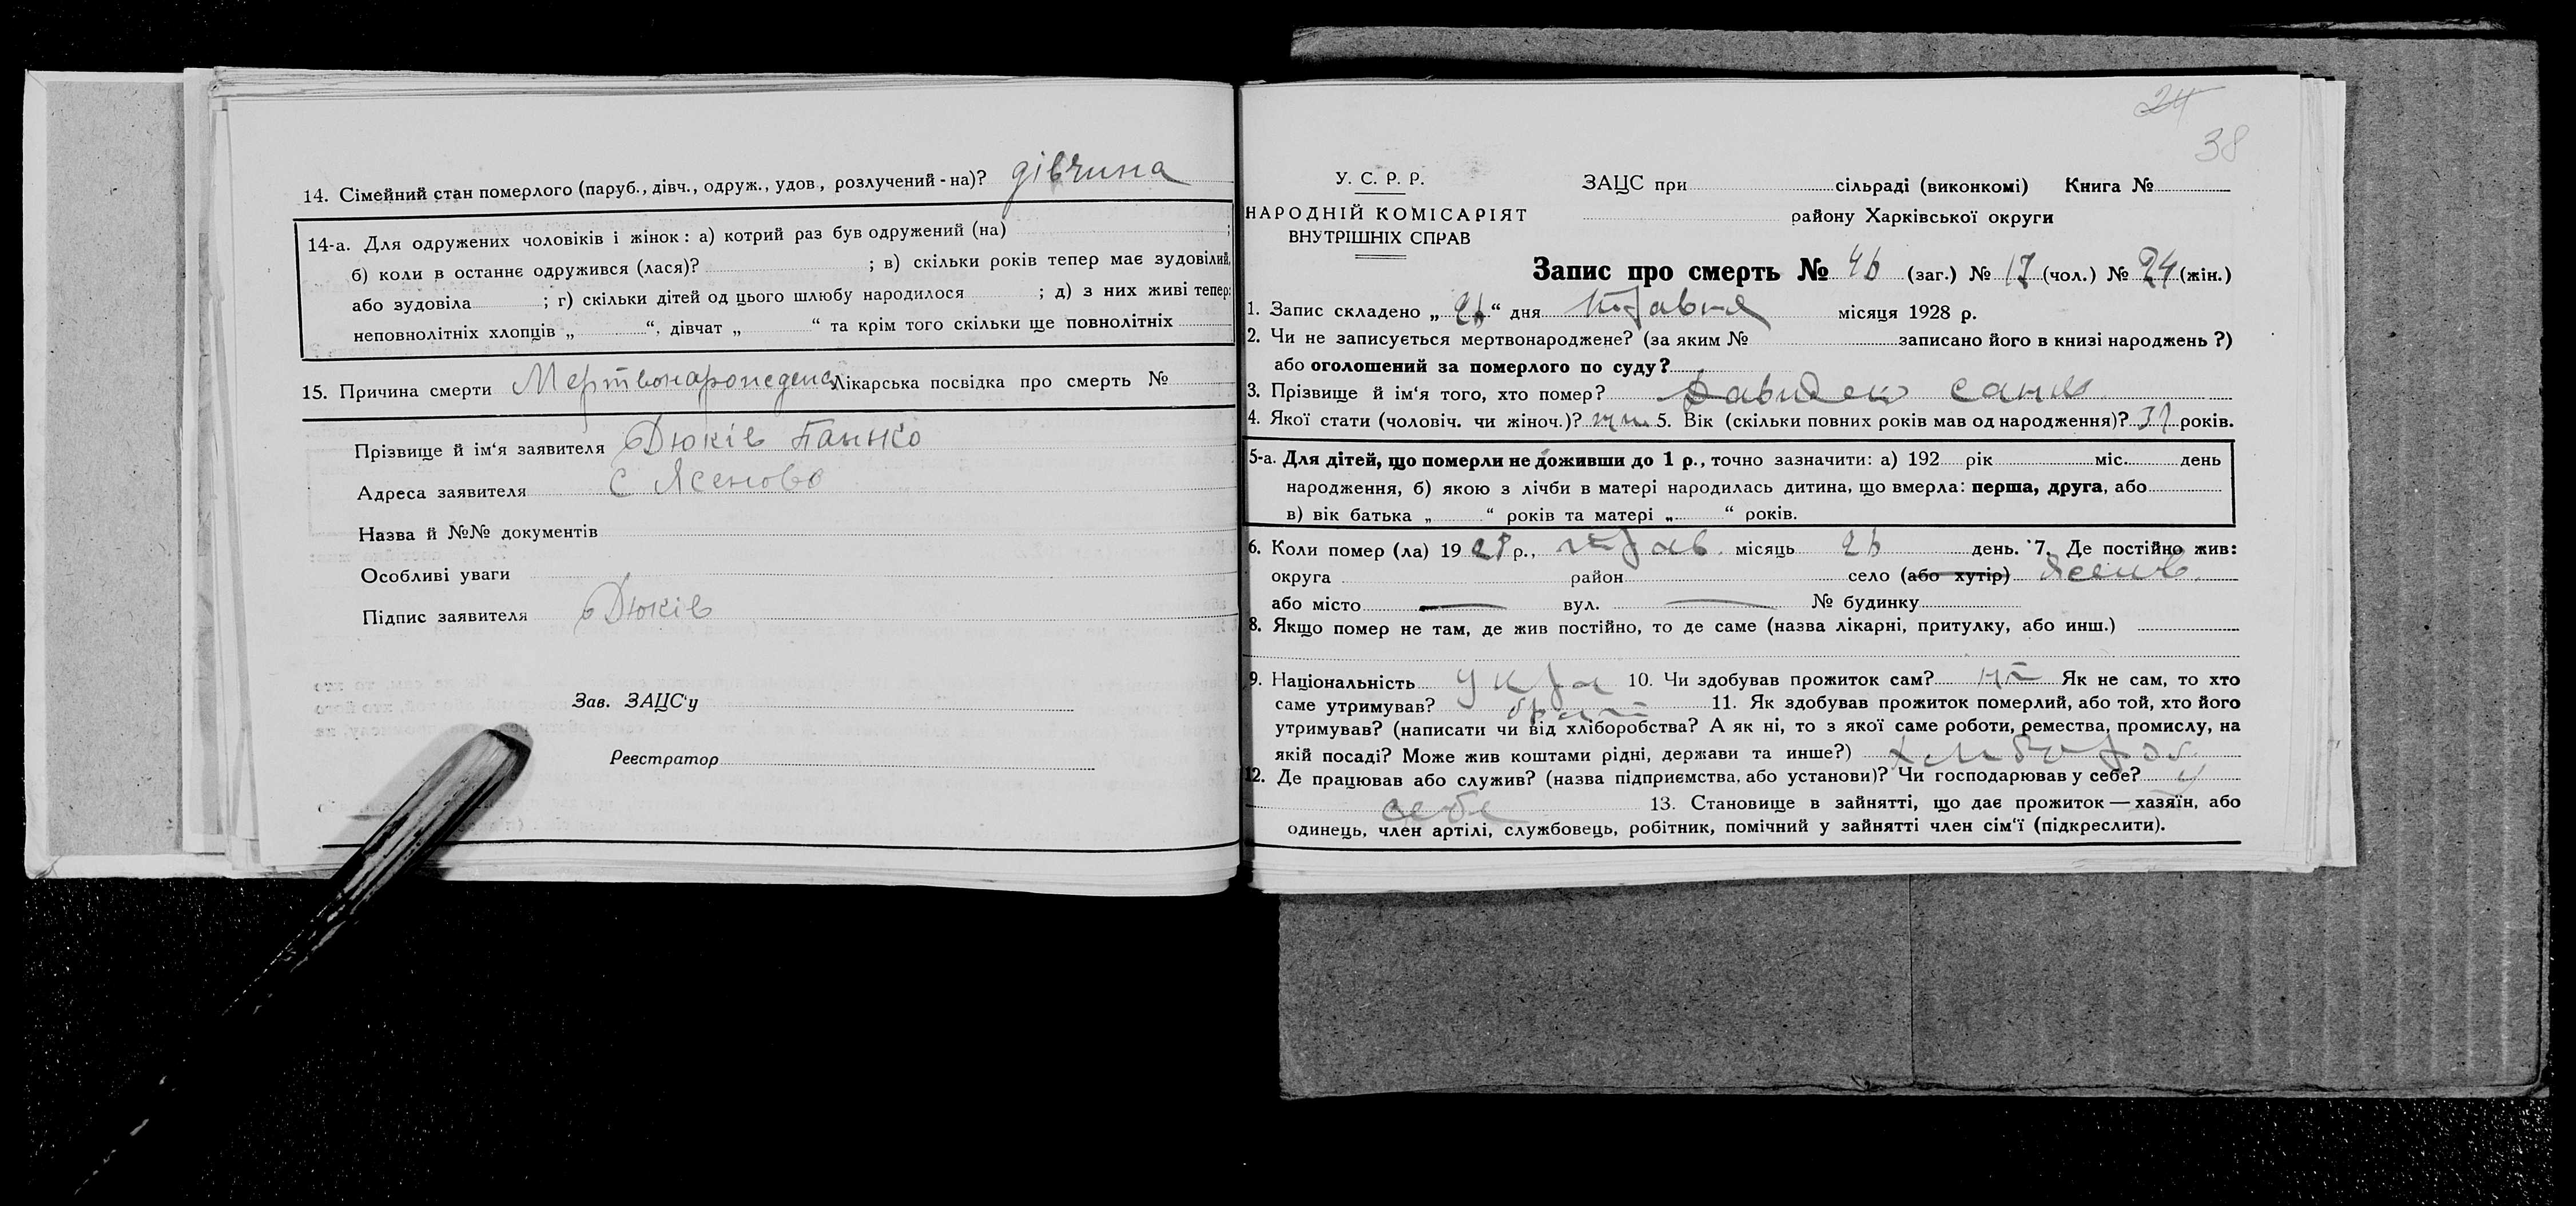 14. Сімейний стан померлого (паруб., дівч., одруж., удов., розлучений-на)? дівчина
14-а. Для одружених чоловіків і жінок: а) котрий раз був одружений (на) ;
б) коли в останнє одружився (лася)? ; в) скільки років тепер має зудовілий,
або зудовіла ; г) скільки дітей од цього шлюбу народилося ; д) з них живі тепер:
неповнолітніх хлопців „ “, дівчат „ “ та крім того скільки ще повнолітніх
15. Причина смерти Лікарська посвідка про смерть №
Прізвище й ім‘я заявителя Дюків Панько
Адреса заявителя с Ясеново
Назва й №№ документів
Особливі уваги
Підпис заявителя Дюків
Зав. ЗАЦС‘у
Реєстратор
24
38
У. С. Р. Р.
НАРОДНІЙ КОМІСАРІЯТ
ВНУТРІШНІХ СПРАВ
ЗАЦС при сільраді (виконкомі) Книга №
району Харківської округи
Запис про смерть № (заг.) № 17 (чол.) № 24 (жін.)
1. Запис складено „ “ дня травня місяця 1928 р.
2. Чи не записується мертвонароджене? (за яким № записано його в книзі народжень ?)
або оголошений за померлого по суду?
3. Прізвище й ім‘я того, хто помер?
4. Якої стати (чоловіч. чи жіноч.)? 5. Вік (скільки повних років мав од народження)? років.
5-а. Для дітей, що померли не доживши до 1 р., точно зазначити: а) 192 рік міс. день
народження, б) якою з лічби в матері народилась дитина, що вмерла: перша, друга, або
в) вік батька „ “ років та матері „ “ років.
6. Коли помер (ла) 1928 р., трав. місяць 26 день. 7. Де постійно жив:
округа район село (або хутір)
або місто — вул. — № будинку
8. Якщо помер не там, де жив постійно, то де саме (назва лікарні, притулку, або инш.)
9. Національність укра 10. Чи здобував прожиток сам? Як не сам, то хто
саме утримував? брат 11. Як здобував прожиток померлий, або той, хто його
утримував? (написати чи від хліборобства? А як ні, то з якої саме роботи, ремества, промислу, на
якій посаді? Може жив коштами рідні, держави та инше?) хлібороб
12. Де працював або служив? (назва підприємства, або установи)? Чи господарював у себе? у
себе 13. Становище в зайнятті, що дає прожиток — хазяїн, або
одинець, член артілі, службовець, робітник, помічний у зайнятті член сім‘ї (підкреслити).